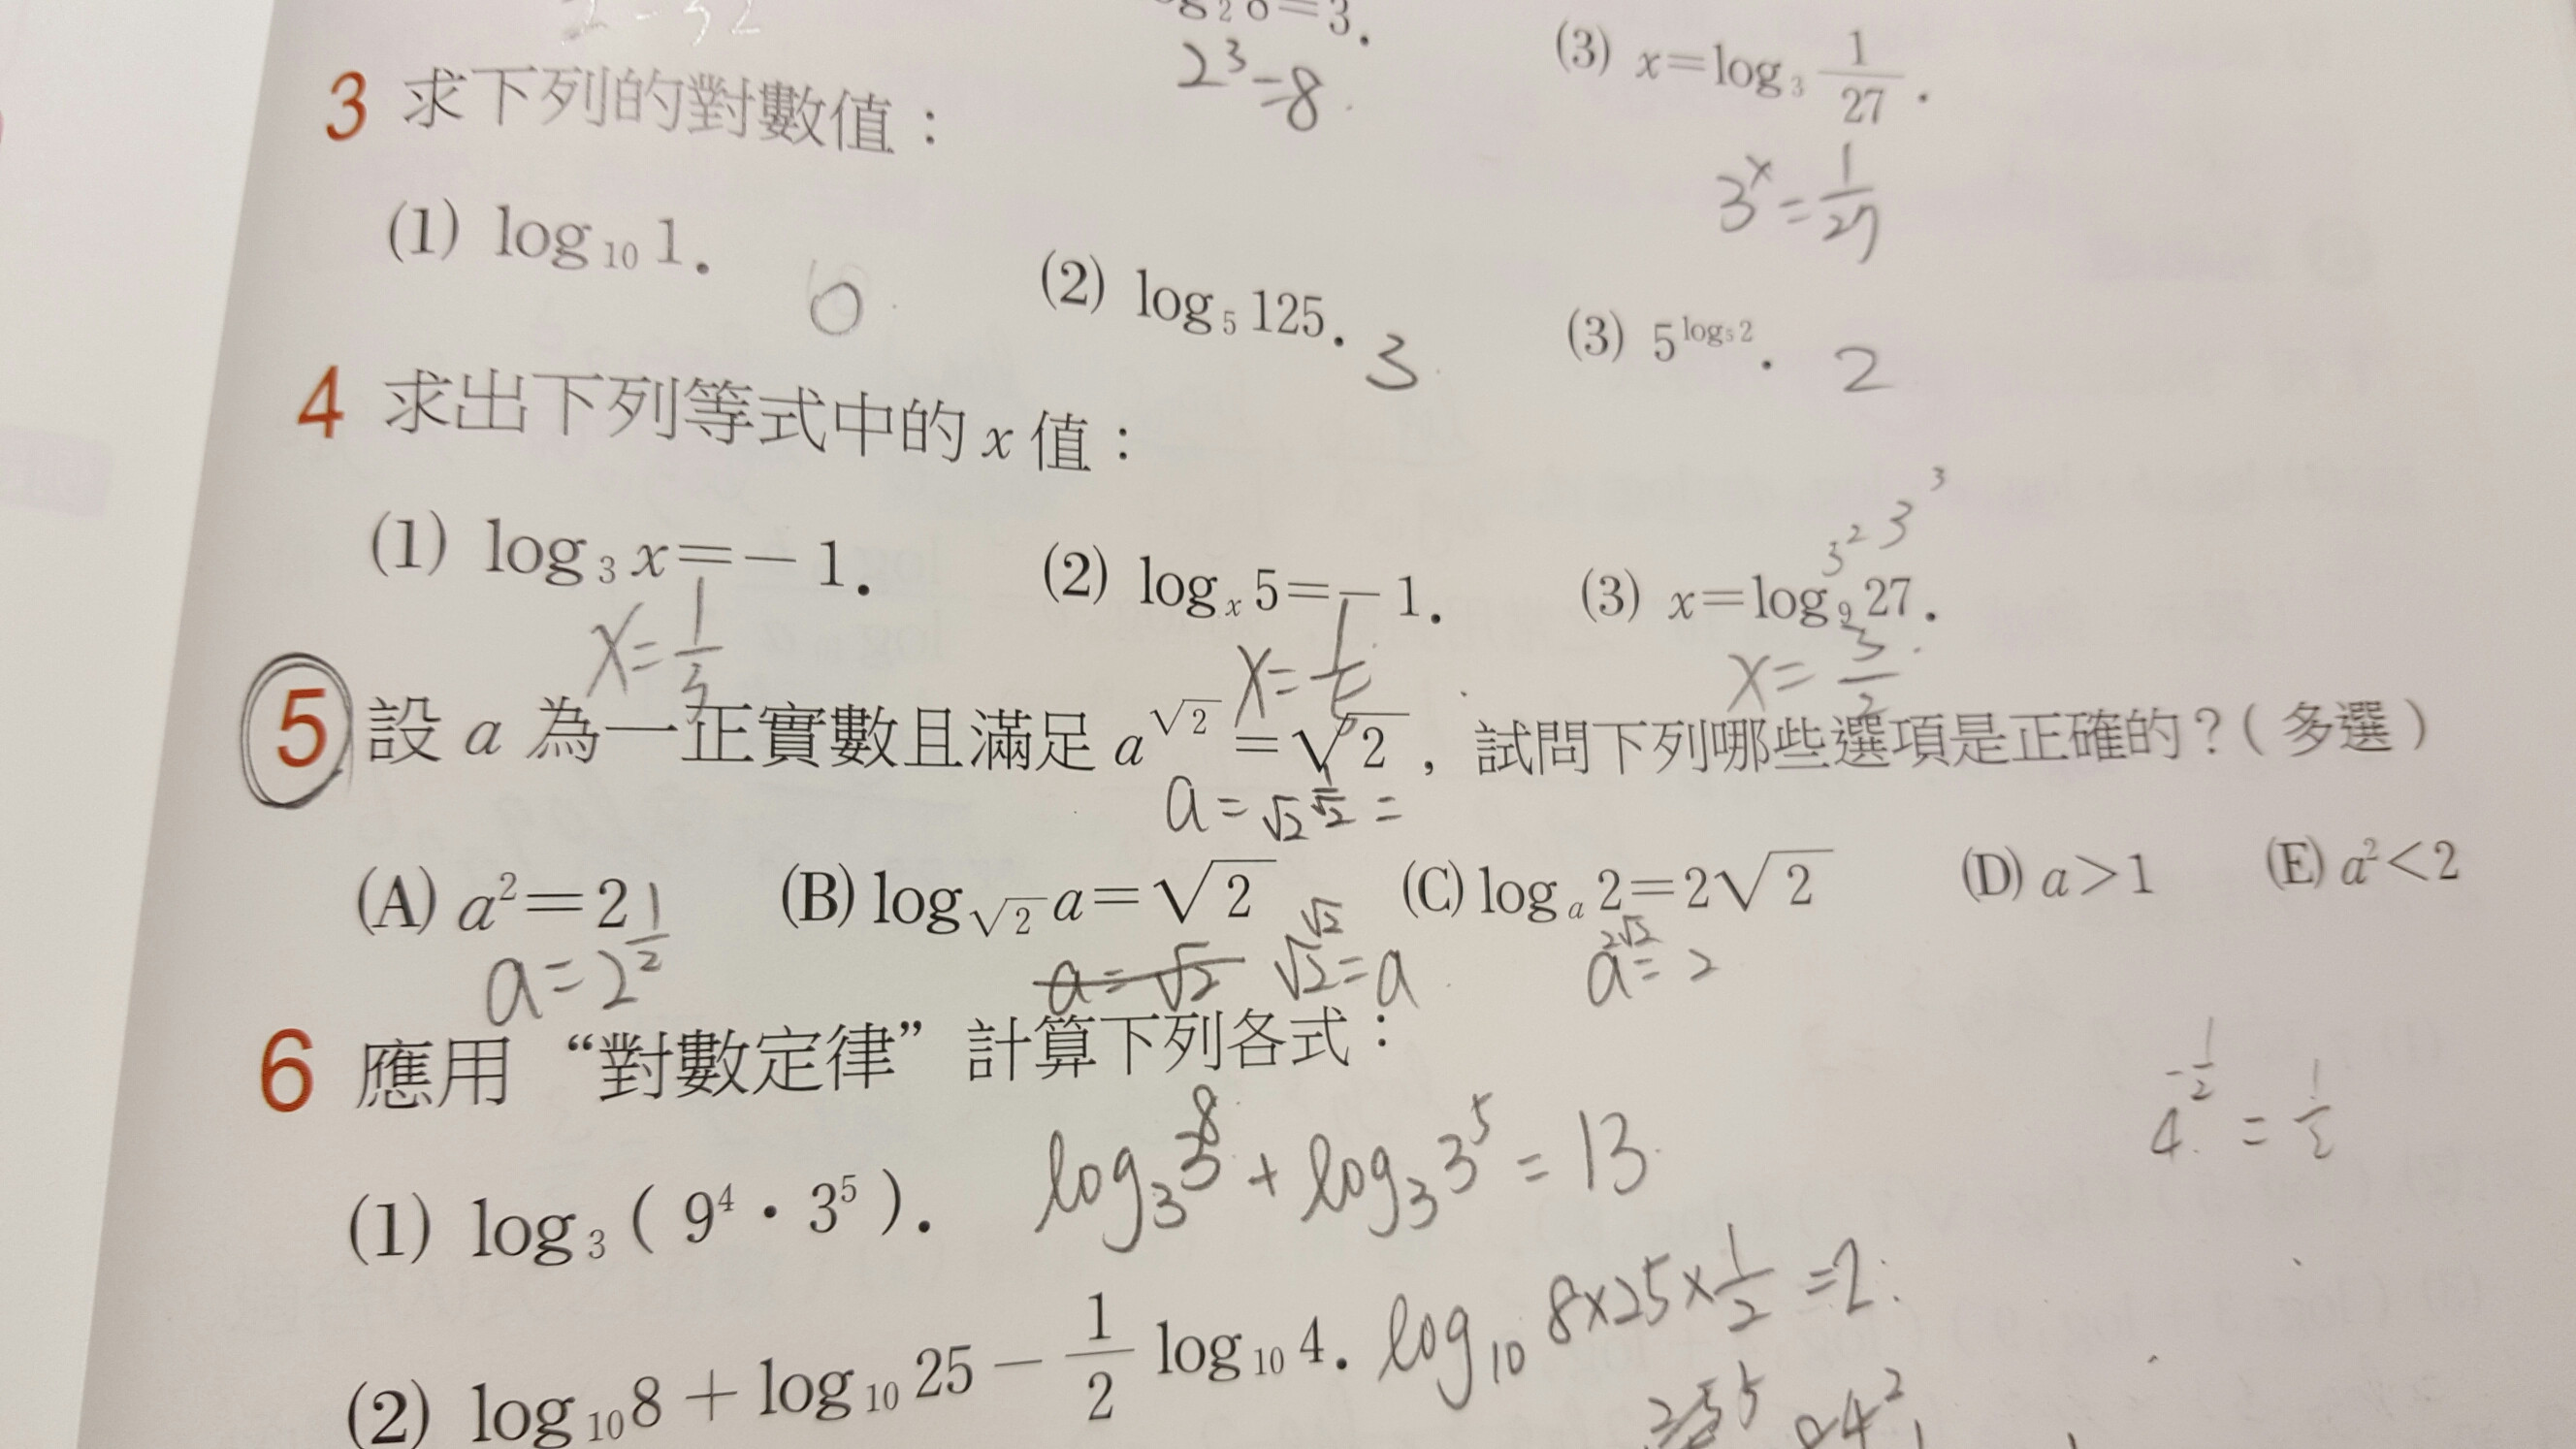 2³=8
(3) x=log₃ 1/27 .
3ˣ = 1/27
3 求下列的對數值:
(1) log₁₀ 1. 0
(2) log₅ 125. 3
(3) 5^(log₅2). 2
4 求出下列等式中的 x 值:
3² 3³
(1) log₃ x=-1.
(2) logₓ 5=-1.
(3) x=log₉ 27.
x=1/3
x=3/2
5 設 a 為一正實數且滿足 a^√2 = √2 , 試問下列哪些選項是正確的?(多選)
a = √2^(1/√2) =
(A) a²=2
(B) log_√2 a=√2
(C) logₐ 2=2√2
(D) a>1
(E) a²<2
a=2^(1/2)
a=√2
√2^√2=a
a^(2√2)=2
6 應用 “對數定律” 計算下列各式:
4^(-1/2) = 1/2
(1) log₃ ( 9⁴ • 3⁵ ).
log₃ 3⁸ + log₃ 3⁵ = 13
(2) log₁₀ 8 + log₁₀ 25 - 1/2 log₁₀ 4.
log₁₀ 8×25×1/2 =2